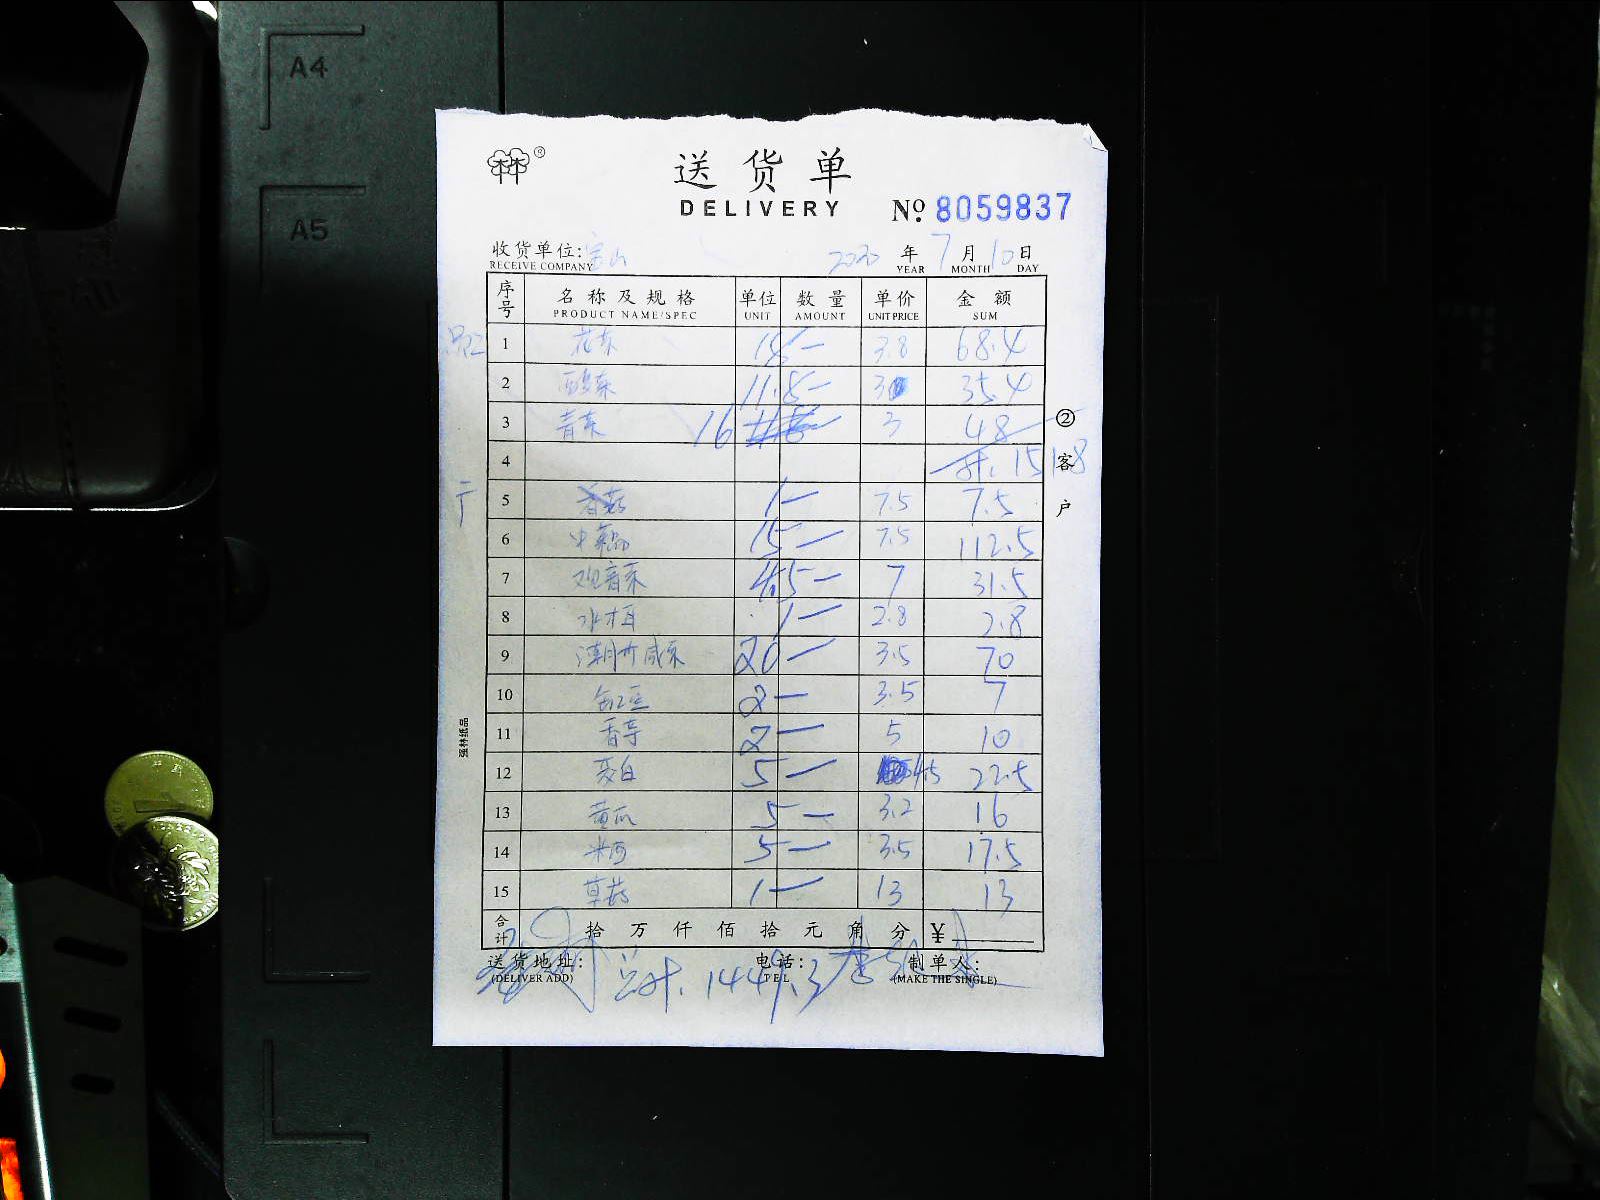 A4
A5
®
送货单
DELIVERY
Nº 8059837
收货单位: 宝山 2020年 7月 10日
RECEIVE COMPANY YEAR MONTH DAY
序号 名称及规格 单位 数量 单价 金额
PRODUCT NAME/SPEC UNIT AMOUNT UNIT PRICE SUM
1 花菜 18 3.8 68.4
2 酸菜 11.8 3 35.4
3 青菜 16 3 48
4 计. 151.8
5 香菇 1 7.5 7.5
6 15 7.5 112.5
7 观音菜 4.5 7 31.5
8 水木耳 1 2.8 2.8
9 潮州咸菜 20 3.5 70
10 豇豆 2 3.5 7
11 香芋 2 5 10
12 茭白 5 4.5 22.5
13 黄瓜 5 3.2 16
14 5 3.5 17.5
15 草菇 1 13 13
合计 拾 万 仟 佰 拾 元 角 分 ¥
送货地址: 电话: 制单人:
(DELIVER ADD) TEL (MAKE THE SINGLE)
总计. 1449.3
②客户
强林纸品